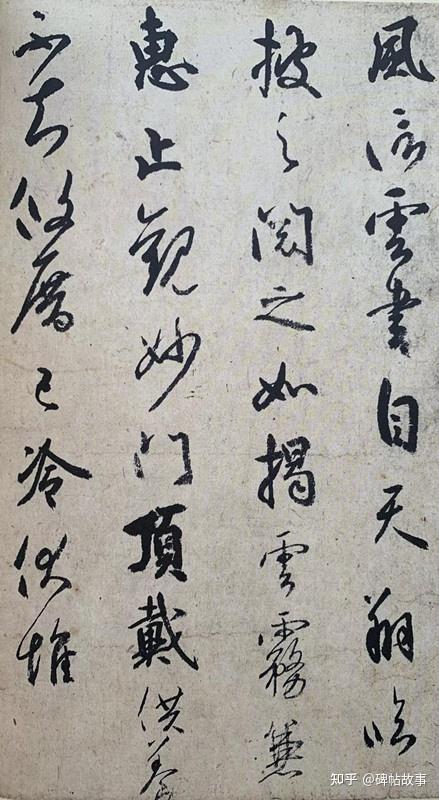 風信雲書自天翔臨
披之閱之如揭雲霧兼
惠止觀妙門頂戴供養
不知攸厝已冷伏惟
知乎 @碑帖故事